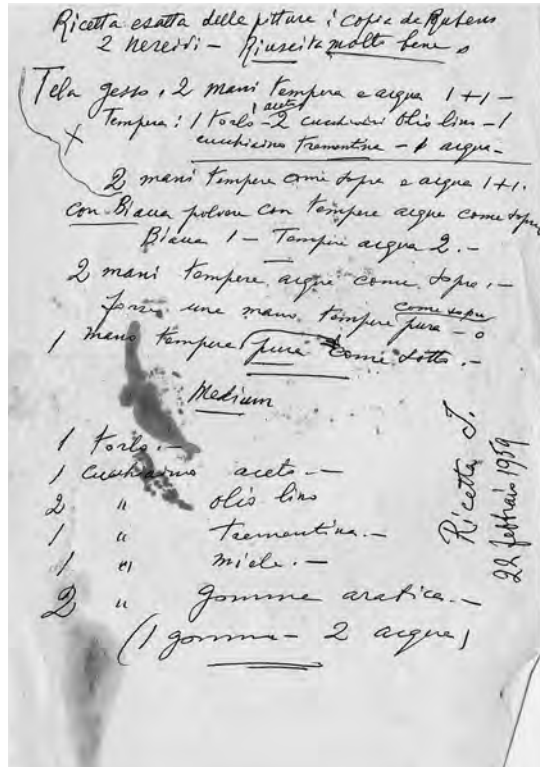 Ricetta esatta delle pitture : copia da Rubens
2 nereidi – Riuscita molto bene
Tela gesso, 2 mani tempera e acqua 1+1 –
aceto
X Tempera : 1 torlo – 2 cucchiaini olio lino – 1
cucchiaino trementina – 1 acqua –
2 mani tempera come sopra e acqua 1+1.
con Biacca polvere con tempera acqua come sopra
Biacca 1 – Tempera acqua 2. –
2 mani tempera acqua come sopra. –
forse una mano tempera pura –
come sopra
1 mano tempera pura come sotto. –
Medium
1 torlo. –
1 cucchiaino aceto. –
2 " olio lino
1 " trementina. –
1 " miele. –
2 " gomma arabica. –
(1 gomma – 2 acqua)
Ricetta J.
22 febbraio 1959